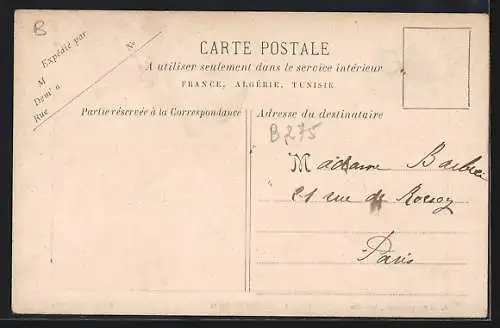 B
Expédié par
M
Demt à
Rue
No
CARTE POSTALE
A utiliser seulement dans le service intérieur
FRANCE, ALGÉRIE, TUNISIE
Partie réservée à la Correspondance
Adresse du destinataire
B,275
Madame
21 rue de
Paris